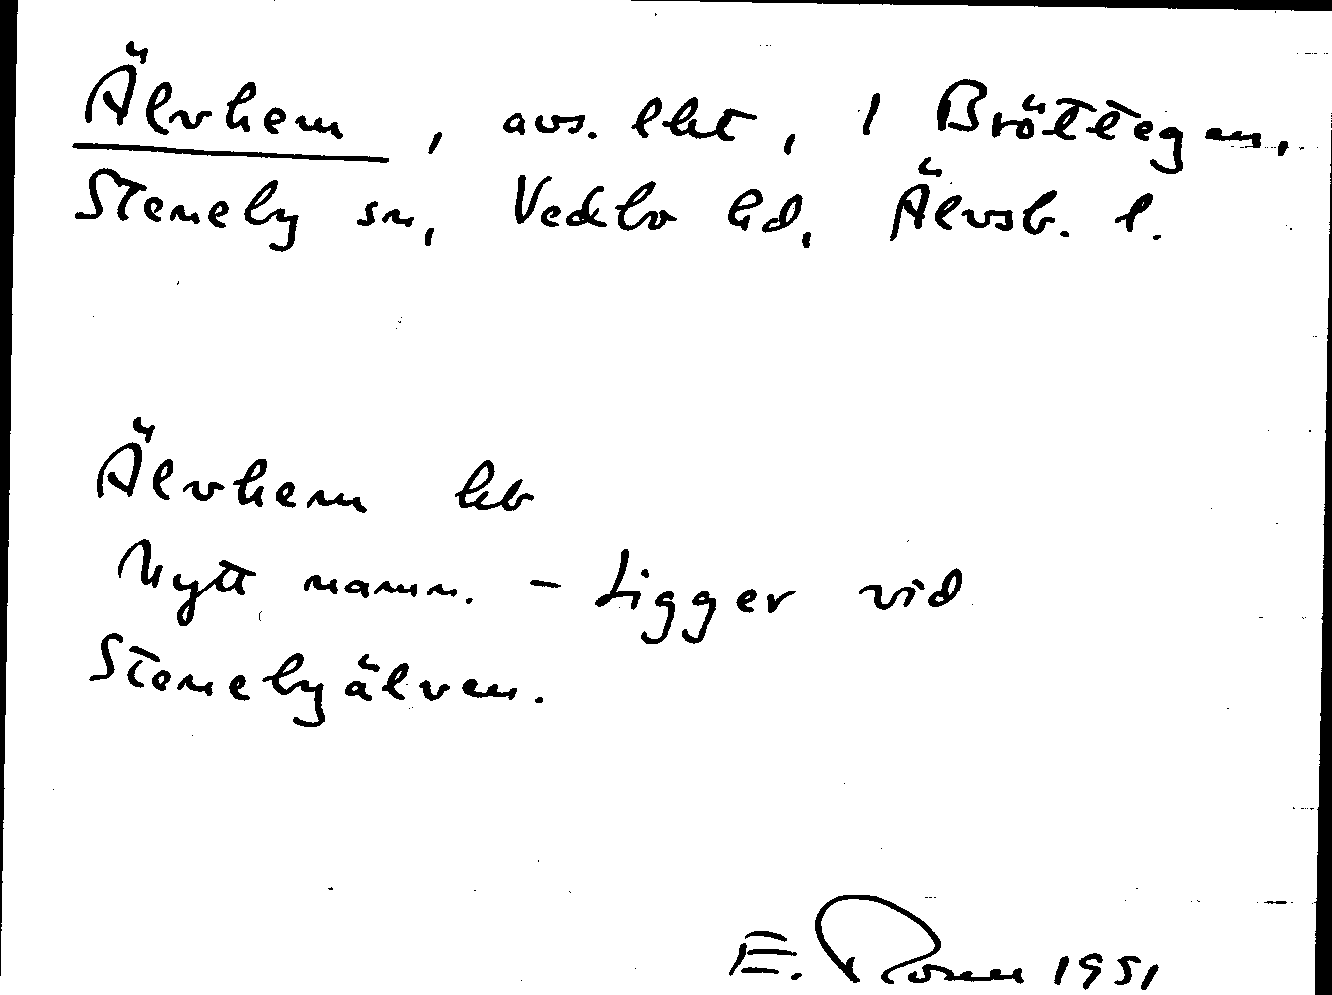 Älvhem, avs. lht, 1 Bröttegen,
Steneby sn, Vedbo hd, Älvsb. l.
Älvhem kb
Nytt namn. – Ligger vid
Stenebyälven.
E. 1951